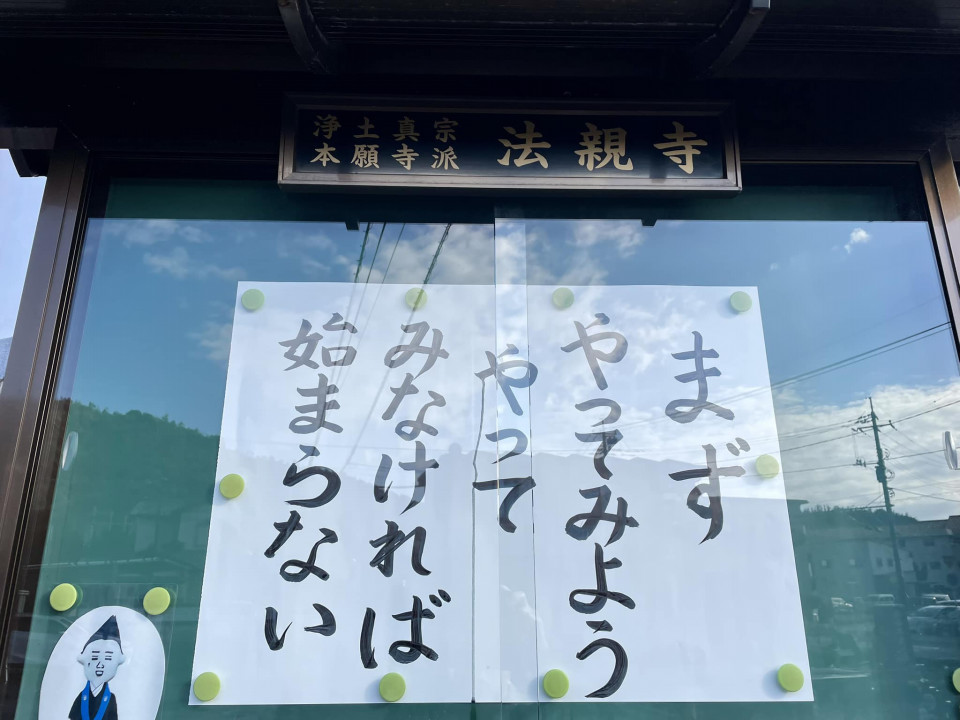 浄土真宗
本願寺派
法親寺
まず
やってみよう
やって
みなければ
始まらない